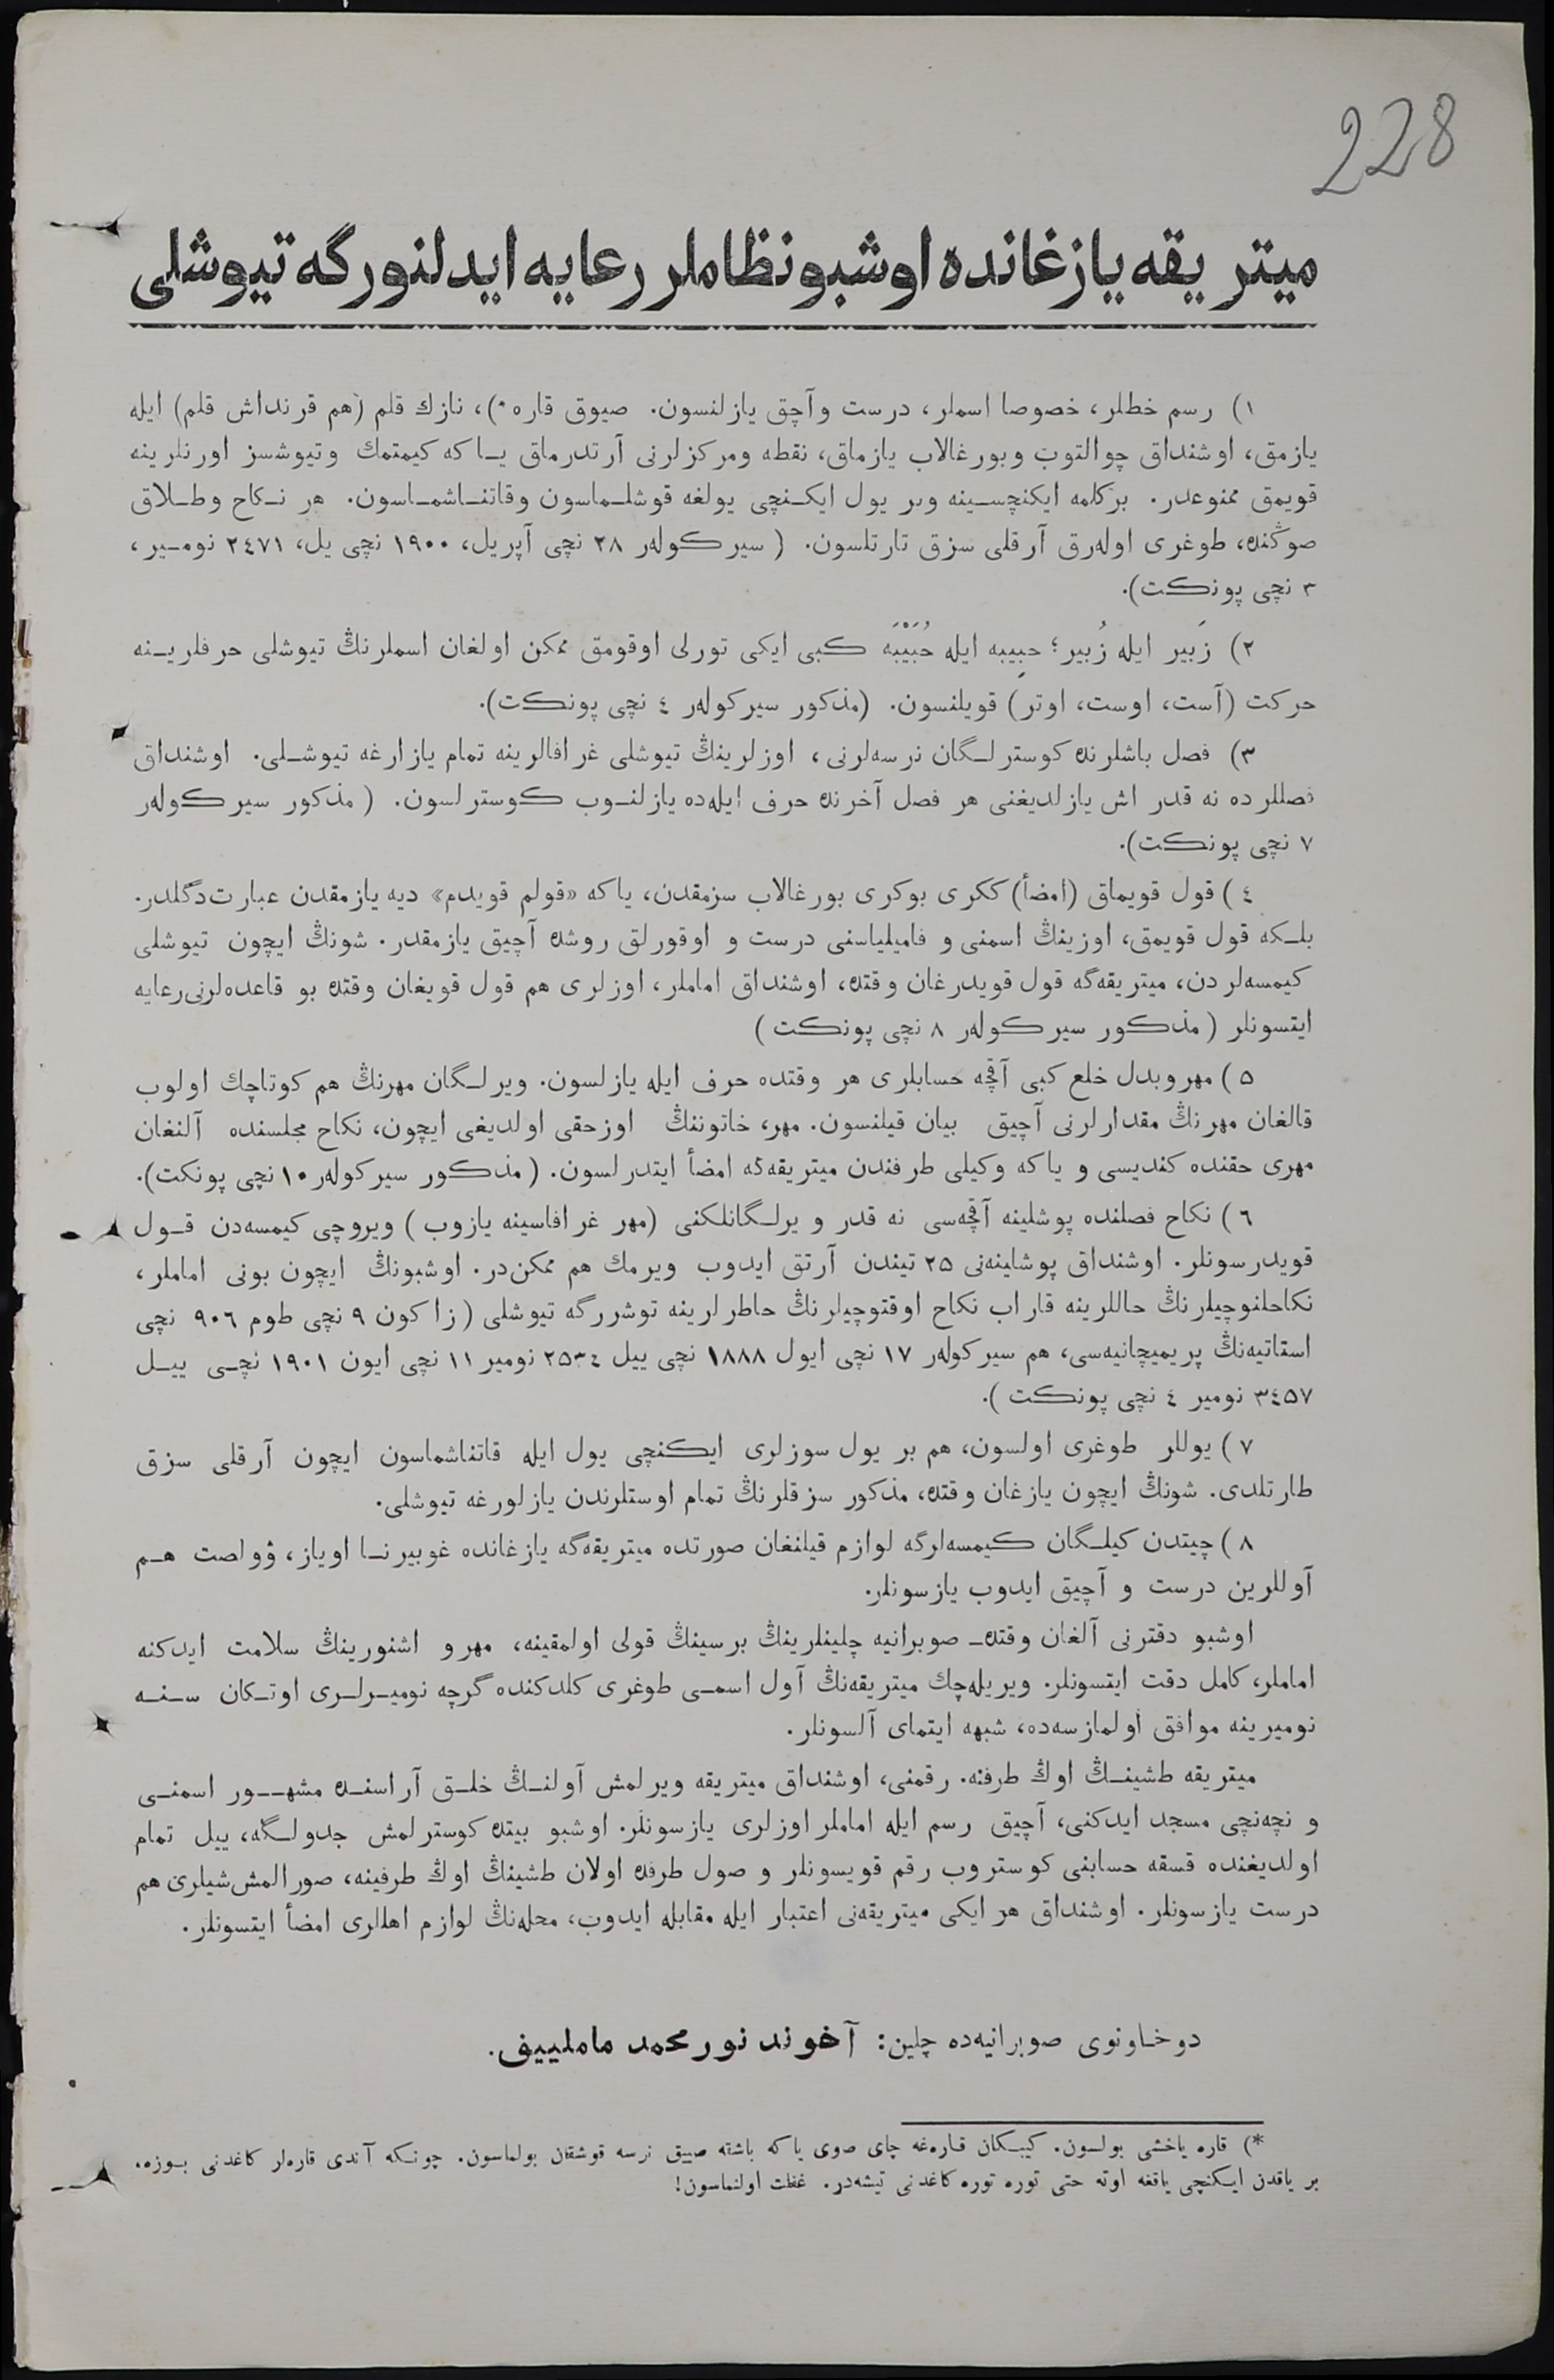 228
ميتريقه يازغانده اوشبو نظاملر رعايه ايدلنورگه تيوشلى
١) رسم خطلر، خصوصا اسملر، درست وآچق يازلنسون. صيوق قاره *)، نازك قلم (هم قرنداش قلم) ايله
يازمق، اوشنداق چوالتوب وبورغالاب يازماق، نقطه ومركزلرنى آرتدرماق يـا كه كيمتمك وتيوشسز اورنلرينه
قويمق ممنوعدر. بركلمه ايكنچسـينه وبر يول ايكـنچى يولغه قوشلـماسون وقاتنـاشمـاسون. هر نـكاح وطـلاق
صوڭنده، طوغرى اوله‌رق آرقلى سزق تارتلسون. (سيركولەر ٢٨ نچى آپريل، ١٩٠٠ نچى يل، ٢٤٧١ نومـير،
٣ نچى پونكت).
٢) زَبير ايله زُبير؛ حبِيبه ايله حُبَيْبَه كبى ايكى تورلى اوقومق ممكن اولغان اسملرنڭ تيوشلى حرفلريـنه
حركت (آست، اوست، اوتر) قويلنسون. (مذكور سيركولەر ٤ نچى پونكت).
٣) فصل باشلرنده كوسترلـگان نرسه‌لرنى، اوزلرينڭ تيوشلى غرافالرينه تمام يازارغه تيوشـلى. اوشنداق
فصللرده نه قدر اش يازلديغنى هر فصل آخرنده حرف ايله‌ده يازلنـوب كوسترلسون. (مذكور سيركولەر
٧ نچى پونكت).
٤) قول قويماق (امضأ) ككرى بوكرى بورغالاب سزمقدن، ياكه «قولم قويدم» ديه يازمقدن عبارت دگلدر.
بلـكه قول قويمق، اوزينڭ اسمنى و فاميلياسنى درست و اوقورلق روشده آچيق يازمقدر. شونڭ ايچون تيوشلى
كيمسه‌لردن، ميتريقه‌گه قول قويدرغان وقتده، اوشنداق اماملر، اوزلرى هم قول قويغان وقتده بو قاعده‌لرنى رعايه
ايتسونلر (مذكور سيركولەر ٨ نچى پونكت)
٥) مهر وبدل خلع كبى آقچه حسابلرى هر وقتده حرف ايله يازلسون. ويرلـگان مهرنڭ هم كوتاچك اولوب
قالغان مهرنڭ مقدارلرنى آچيق بيان قيلنسون. مهر، خاتوننڭ اوزحقى اولديغى ايچون، نكاح مجلسنده آلنغان
مهرى حقنده كنديسى و ياكه وكيلى طرفندن ميتريقه‌گه امضأ ايتدرلسون. (مذكور سيركولەر ١٠ نچى پونكت).
٦) نكاح فصلنده پوشلينه آقچه‌سى نه قدر ويرلـگانلكنى (مهر غرافاسينه يازوب) ويروچى كيمسه‌دن قـول
قويدرسونلر. اوشنداق پوشلينه‌نى ٢٥ تيندن آرتق ايدوب ويرمك هم ممكن‌در. اوشبونڭ ايچون بونى اماملر،
نكاحلنوچيلرنڭ حاللرينه قاراب نكاح اوقتوچيلرنڭ خاطرلرينه توشررگه تيوشلى (زاكون ٩ نچى طوم ٩٠٦ نچى
استاتيه‌نڭ پريميچانيه‌سى، هم سيركولەر ١٧ نچى ايول ١٨٨٨ نچى ييل ٢٥٣٤ نومير ١١ نچى ايون ١٩٠١ نچـى ييـل
٣٤٥٧ نومير ٤ نچى پونكت).
٧) يوللر طوغرى اولسون، هم بر يول سوزلرى ايكنچى يول ايله قاتناشماسون ايچون آرقلى سزق
طارتلدى. شونڭ ايچون يازغان وقتده، مذكور سزقلرنڭ تمام اوستلرندن يازلورغه تيوشلى.
٨) چيتدن كيلـگان كيمسه‌لرگه لوازم قيلنغان صورتده ميتريقه‌گه يازغانده غوبيرنـا اوياز، ۋولصت هـم
آوللرين درست و آچيق ايدوب يازسونلر.
اوشبو دفترنى آلغان وقتده ـ صوبرانيه چلينلرينڭ برسينڭ قولى اولمقينه، مهر و اشنورينڭ سلامت ايدكنه
اماملر، كامل دقت ايتسونلر. ويريله‌چك ميتريقه‌نڭ آول اسمـى طوغرى كلدكنده گرچه نوميـرلـرى اوتـكان سـنـه
نوميرينه موافق اولمازسه‌ده، شبهه ايتماى آلسونلر.
ميتريقه طشينـڭ اوڭ طرفنه. رقمنى، اوشنداق ميتريقه ويرلمش آولنـڭ خلـق آراسنـده مشهــور اسمنـى
و نچه‌نچى مسجد ايدكنى، آچيق رسم ايله اماملر اوزلرى يازسونلر. اوشبو بيتده كوسترلمش جدولـگه، ييل تمام
اولديغنده قسقه حسابنى كوستروب رقم قويسونلر و صول طرفده اولان طشينڭ اوڭ طرفينه، صورالمش شيلرى هم
درست يازسونلر. اوشنداق هر ايكى ميتريقه‌نى اعتبار ايله مقابله ايدوب، محله‌نڭ لوازم اهللرى امضأ ايتسونلر.
دوخـاونوى صوبرانيه‌ده چلين: آخوند نورمحمد ماملييف.
*) قاره ياخشى بولـسون. كيبـكان قـاره‌غه چاى صوى ياكه باشقه صييق نرسه قوشقان بولماسون. چونـكه آندى قاره‌لر كاغدنى بـوزه،
بر ياقدن ايـكنچى ياقغه اوته حتى توره توره كاغدنى تيشه‌در. غفلت اولنماسون!